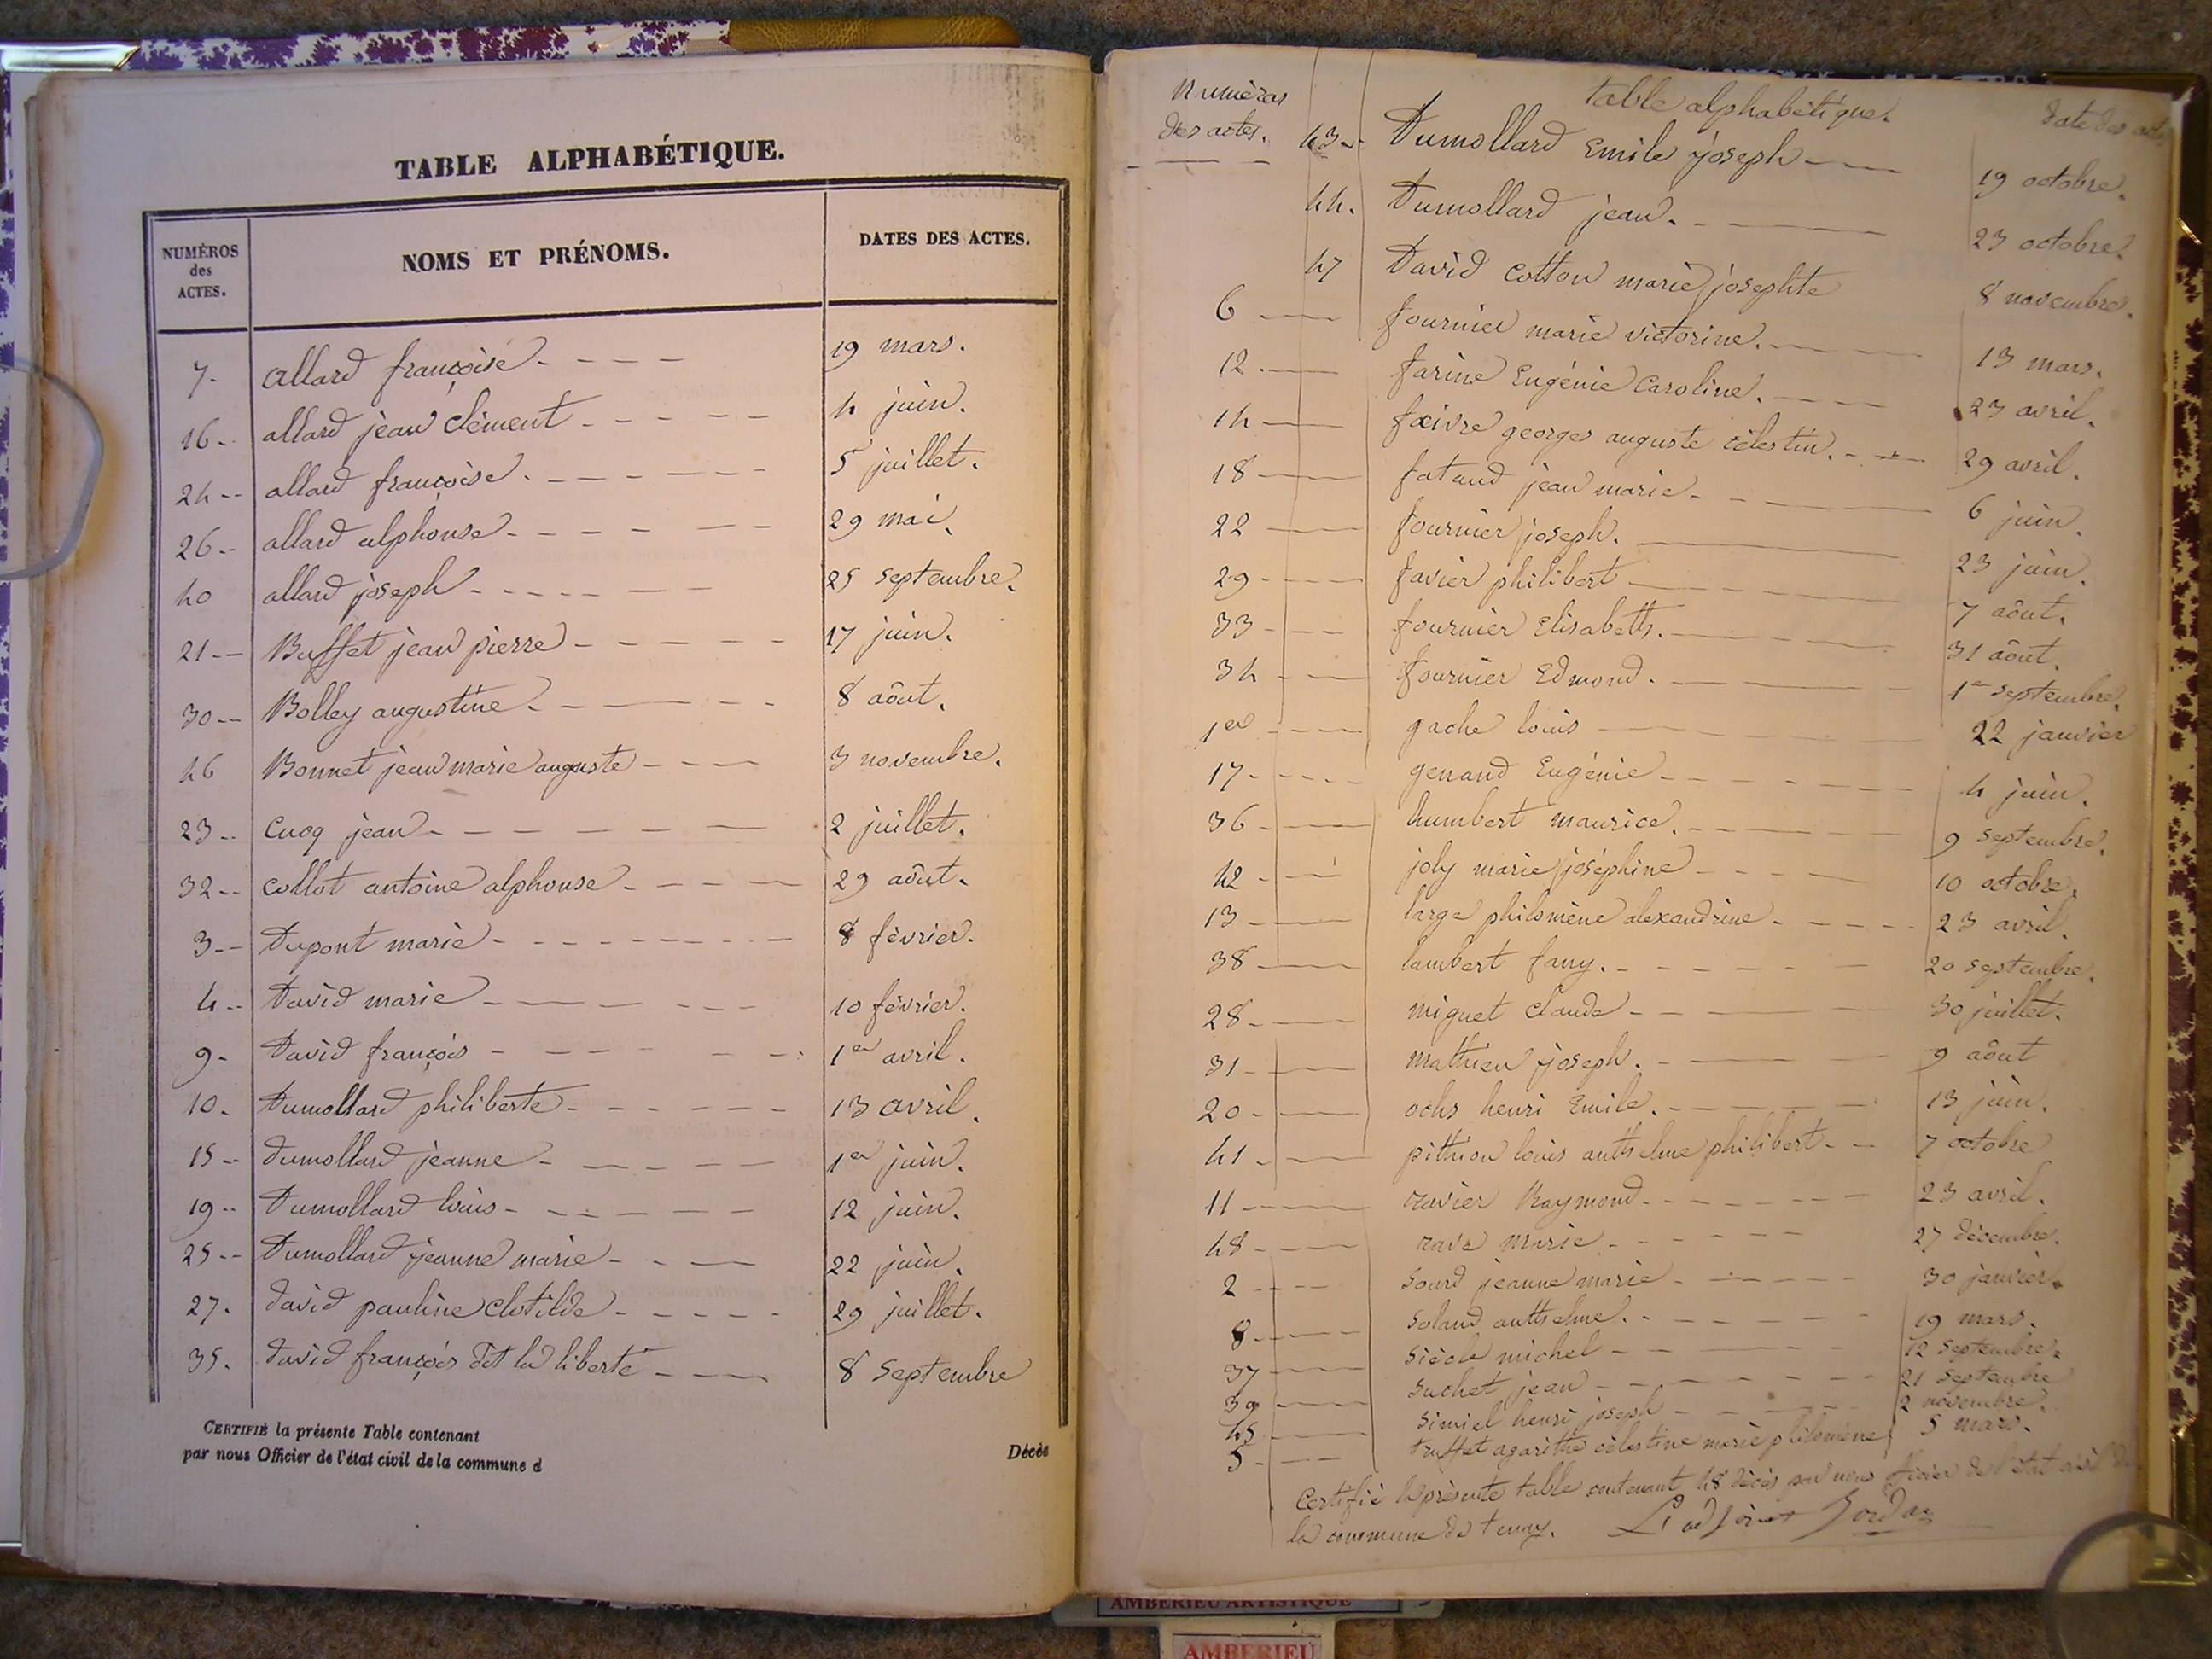 TABLE ALPHABÉTIQUE.
NUMÉROS des ACTES. NOMS ET PRÉNOMS. DATES DES ACTES.
7- allard françoise - - - - 19 mars.
16 -- allard jean clément - - - - 4 juin.
24 -- allard françoise. - - - - - 5 juillet.
26 -- allard alphonse - - - - - 29 mai.
40 allard joseph - - - - - - 25 septembre.
21 -- Buffet jean pierre - - - - - 17 juin.
30 -- Bolley augustine - - - - - 8 aôut.
46 Bonnet jean marie auguste - - - 3 novembre.
23 -- Cuoq jean - - - - - - 2 juillet.
32 -- collot antoine alphonse - - - - 29 aôut.
3 -- Dupont marie - - - - - - 8 février.
4 -- David marie - - - - - - 10 février.
9 - David françois - - - - - - 1er avril.
10. Dumollard philiberte - - - - - 13 avril.
15 -- dumollard jeanne - - - - - 1er juin.
19 -- Dumollard louis - - - - - - 12 juin.
25 -- Dumollard jeanne marie - - - 22 juin.
27. david pauline clotilde - - - - - 29 juillet.
35. david françois dit la liberté - - - 8 septembre
CERTIFIÉ la présente Table contenant
par nous Officier de l'état civil de la commune d Décès
Numéros des actes. table alphabétique. date des actes
43 -- Dumollard Emile joseph - - 19 octobre.
44. Dumollard jean. - - - 23 octobre.
47 David cotton marie josephte 8 novembre.
6 -- fournier marie victorine. - - - 13 mars.
12. -- farine Eugénie Caroline. - - - 23 avril.
14 -- faivre georges auguste célestin. - - 29 avril.
18 -- fataud jean marie - - - 6 juin.
22 -- fournier joseph. - - 23 juin.
29 - - - favier philibert - - - 7 aôut.
33 - - - fournier Elisabeth. - - - 31 aôut.
34 - - - fournier Edmond. - - - 1er septembre.
1er - - - gache louis - - - - 22 janvier
17 - - - - genaud Eugénie - - - - - 4 juin.
36 - -- humbert maurice. - - - - 9 septembre.
42 - - joly marie joséphine - - - - 10 octobre.
13 -- large philomène alexandrine - - - - 23 avril.
38 -- lambert fany. - - - - - - 20 septembre.
28 - -- miguet claude - - - - 30 juillet.
31 - -- mathieu joseph. - - - - 9 aôut
20 - -- ochs henri Emile. - - - - 13 juin.
41 - -- pithion louis anthelme philibert - - 7 octobre
11 -- ravier Raymond - - - - - - 23 avril.
48 - -- rave marie - - - - - - 27 décembre.
2 - - - sourd jeanne marie - - - - - 30 janvier.
8 - -- soland anthelme. - - - - - - 19 mars.
37 -- siècle michel - - - - - 12 septembre.
39 -- suchet jean - - - - - - 21 septembre
45 -- simiel henri joseph - - - - 2 novembre.
5 - -- truffet agarithe célestine marie philomène 5 mars.
Certifié la présente table contenant 48 décès par nous officier de l'état civil de
la commune de tenay. L'adjoint
AMBERIEU ARTISTIQUE
AMBERIEU